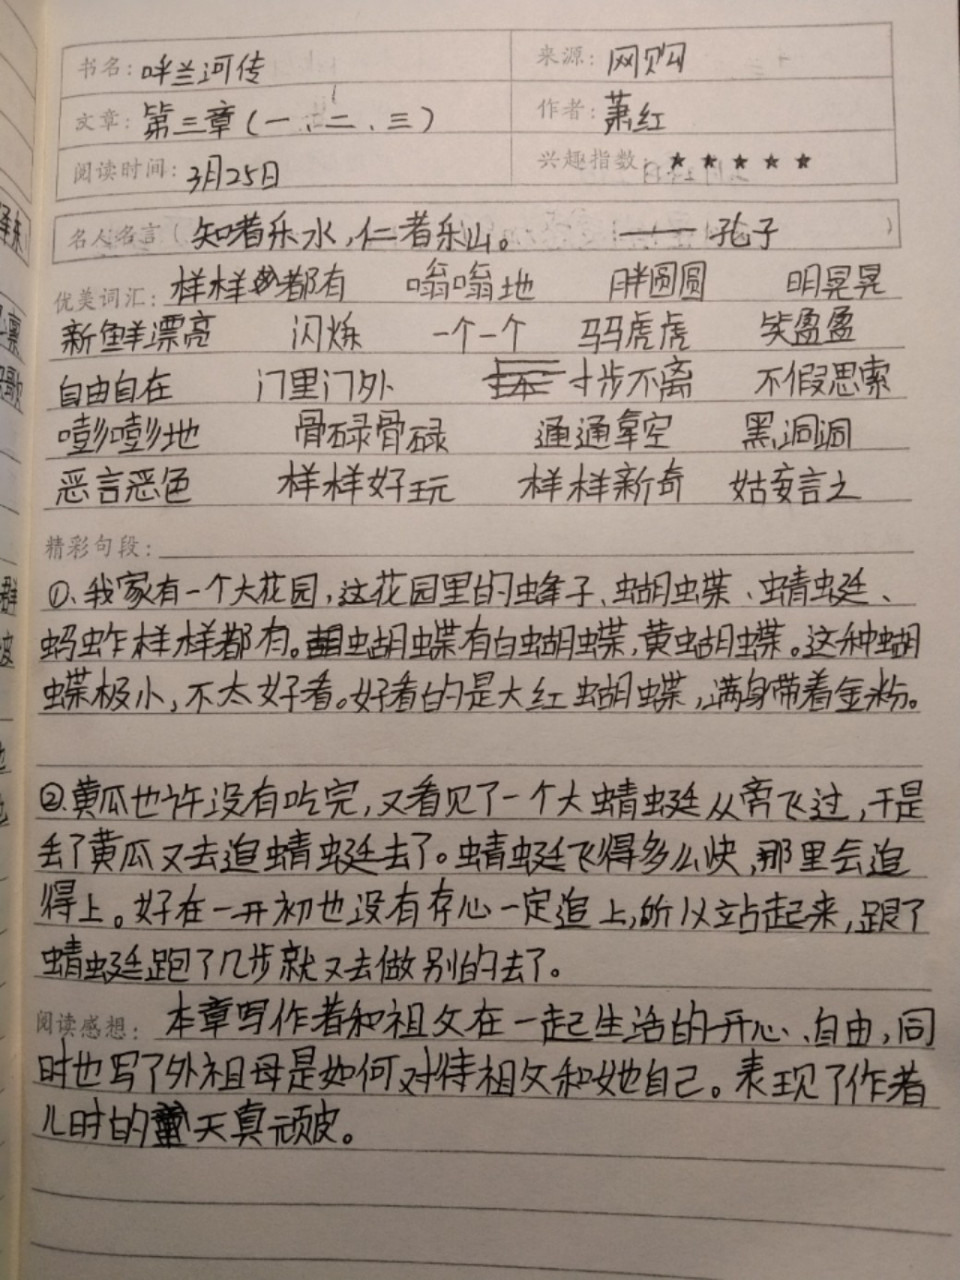 书名：呼兰河传 来源：网购
文章：第三章（一、二、三） 作者：萧红
阅读时间：3月25日 兴趣指数：★★★★★
名人名言（知者乐水，仁者乐山。——孔子）
优美词汇：样样都有 嗡嗡地 胖圆圆 明晃晃
新鲜漂亮 闪烁 一个一个 马马虎虎 笑盈盈
自由自在 门里门外 寸步不离 不假思索
嘭嘭地 骨碌骨碌 通通拿空 黑洞洞
恶言恶色 样样好玩 样样新奇 姑妄言之
精彩句段：
①、我家有一个大花园，这花园里的蜂子、蝴蝶、蜻蜓、
蚂蚱样样都有。蝴蝶有白蝴蝶，黄蝴蝶。这种蝴
蝶极小，不太好看。好看的是大红蝴蝶，满身带着金粉。
②、黄瓜也许没有吃完，又看见了一个大蜻蜓从旁飞过，于是
丢了黄瓜又去追蜻蜓去了。蜻蜓飞得多么快，那里会追
得上。好在一开初也没有存心一定追上，所以站起来，跟了
蜻蜓跑了几步就又去做别的去了。
阅读感想：本章写作者和祖父在一起生活的开心、自由，同
时也写了外祖母是如何对待祖父和她自己。表现了作者
儿时的天真顽皮。